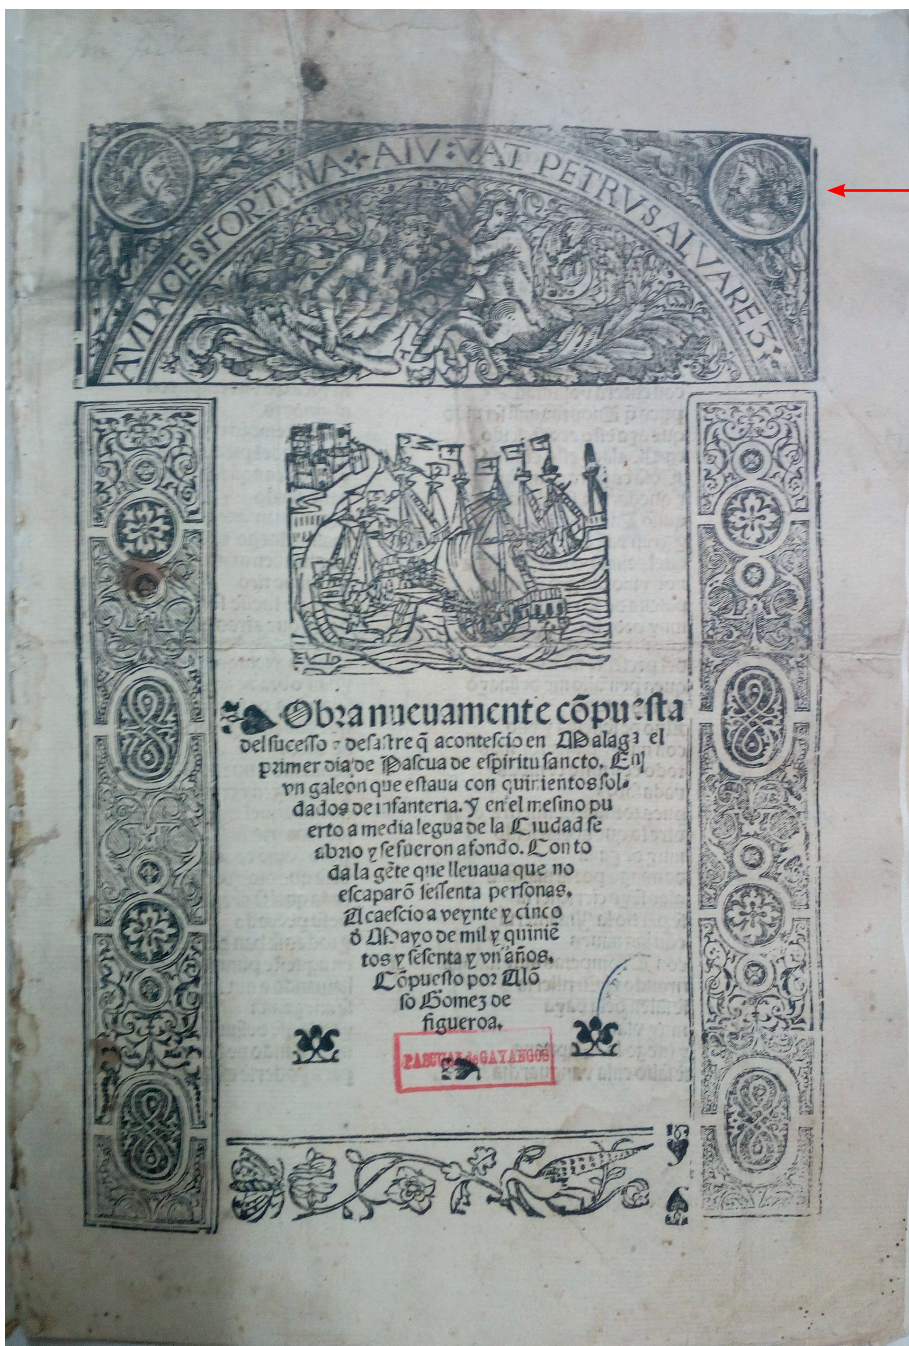 AVDACES FORTVNA AIV VAT PETRVS ALVAREZ
Obra nueuamente cõpuesta
del sucesso z desastre q̃ acontescio en Malaga el
primer dia de Pascua de espiritu sancto. En
vn galeon que estaua con quinientos sol-
dados de infanteria. Y en el mesmo pu
erto a media legua de la Ciudad se
abrio y se fueron a fondo. Con to
da la gẽte que lleuaua que no
escaparõ sessenta personas.
Acaescio a veynte y cinco
d̃ Mayo de mil y quiniẽ
tos y sesenta y vn años.
Cõpuesto por Alõ
so Gomez de
figueroa.
PASCUAL de GAYANGOS